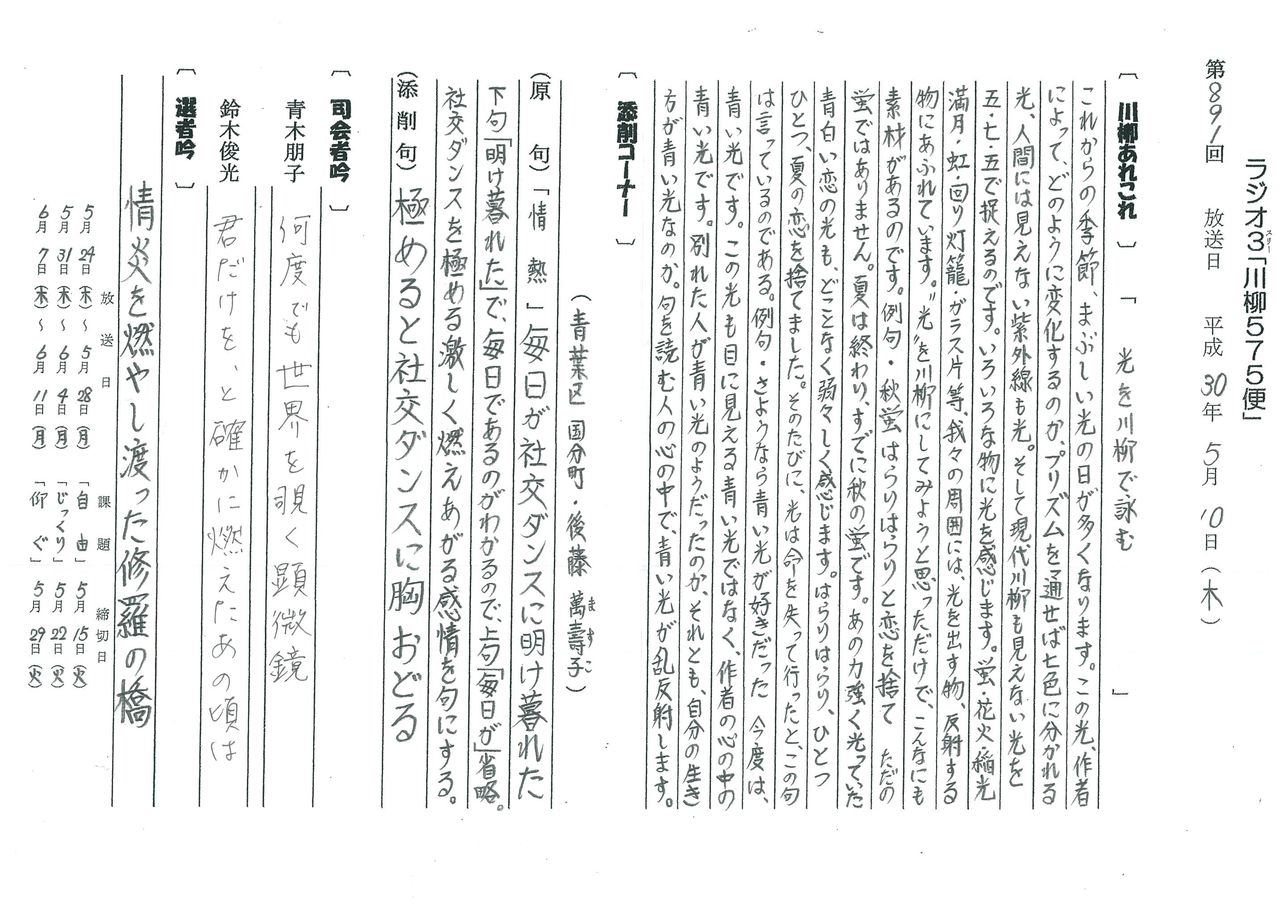 ラジオ3「川柳575便」
スリー
第891回　放送日　平成30年5月10日（木）
〔川柳あれこれ〕「光を川柳で詠む　」
これからの季節、まぶしい光の日が多くなります。この光、作者
によって、どのように変化するのか、プリズムを通せば七色に分かれる
光、人間には見えない紫外線も光。そして現代川柳も見えない光を
五・七・五で捉えるのです。いろいろな物に光を感じます。蛍・花火・稲光
満月・虹・回り灯籠・ガラス片等、我々の周囲には、光を出す物、反射する
物にあふれています。〝光〟を川柳にしてみようと思っただけで、こんなにも
素材があるのです。例句・秋蛍はらりはらりと恋を捨て　ただの
蛍ではありません。夏は終わり、すでに秋の蛍です。あの力強く光っていた
青白い恋の光も、どことなく弱々しく感じます。はらりはらり、ひとつ
ひとつ、夏の恋を捨てました。そのたびに、光は命を失って行ったと、この句
は言っているのである。例句・さようなら青い光が好きだった　今度は、
青い光です。この光も目に見える青い光ではなく、作者の心の中の
青い光です。別れた人が青い光のようだったのか、それとも、自分の生き
方が青い光なのか。句を読む人の心の中で、青い光が乱反射します。
〔添削コーナー〕
（青葉区国分町・後藤萬壽子）
ますこ
（原　句）「情　熱」毎日が社交ダンスに明け暮れた
下句「明け暮れた」で、毎日であるのがわかるので、上句「毎日が」省略。
社交ダンスを極める激しく燃えあがる感情を句にする。
（添削句）極めると社交ダンスに胸おどる
〔司会者吟〕
青木朋子　何度でも世界を覗く顕微鏡
鈴木俊光　君だけをゝと確かに燃えたあの頃は
〔選者吟〕
情炎を燃やし渡った修羅の橋
放送日　課題　締切日
5月24日（木）～5月28日（月）「自由」5月15日（火）
5月31日（木）～6月4日（月）「じっくり」5月22日（火）
6月7日（木）～6月11日（月）「仰ぐ」5月29日（火）